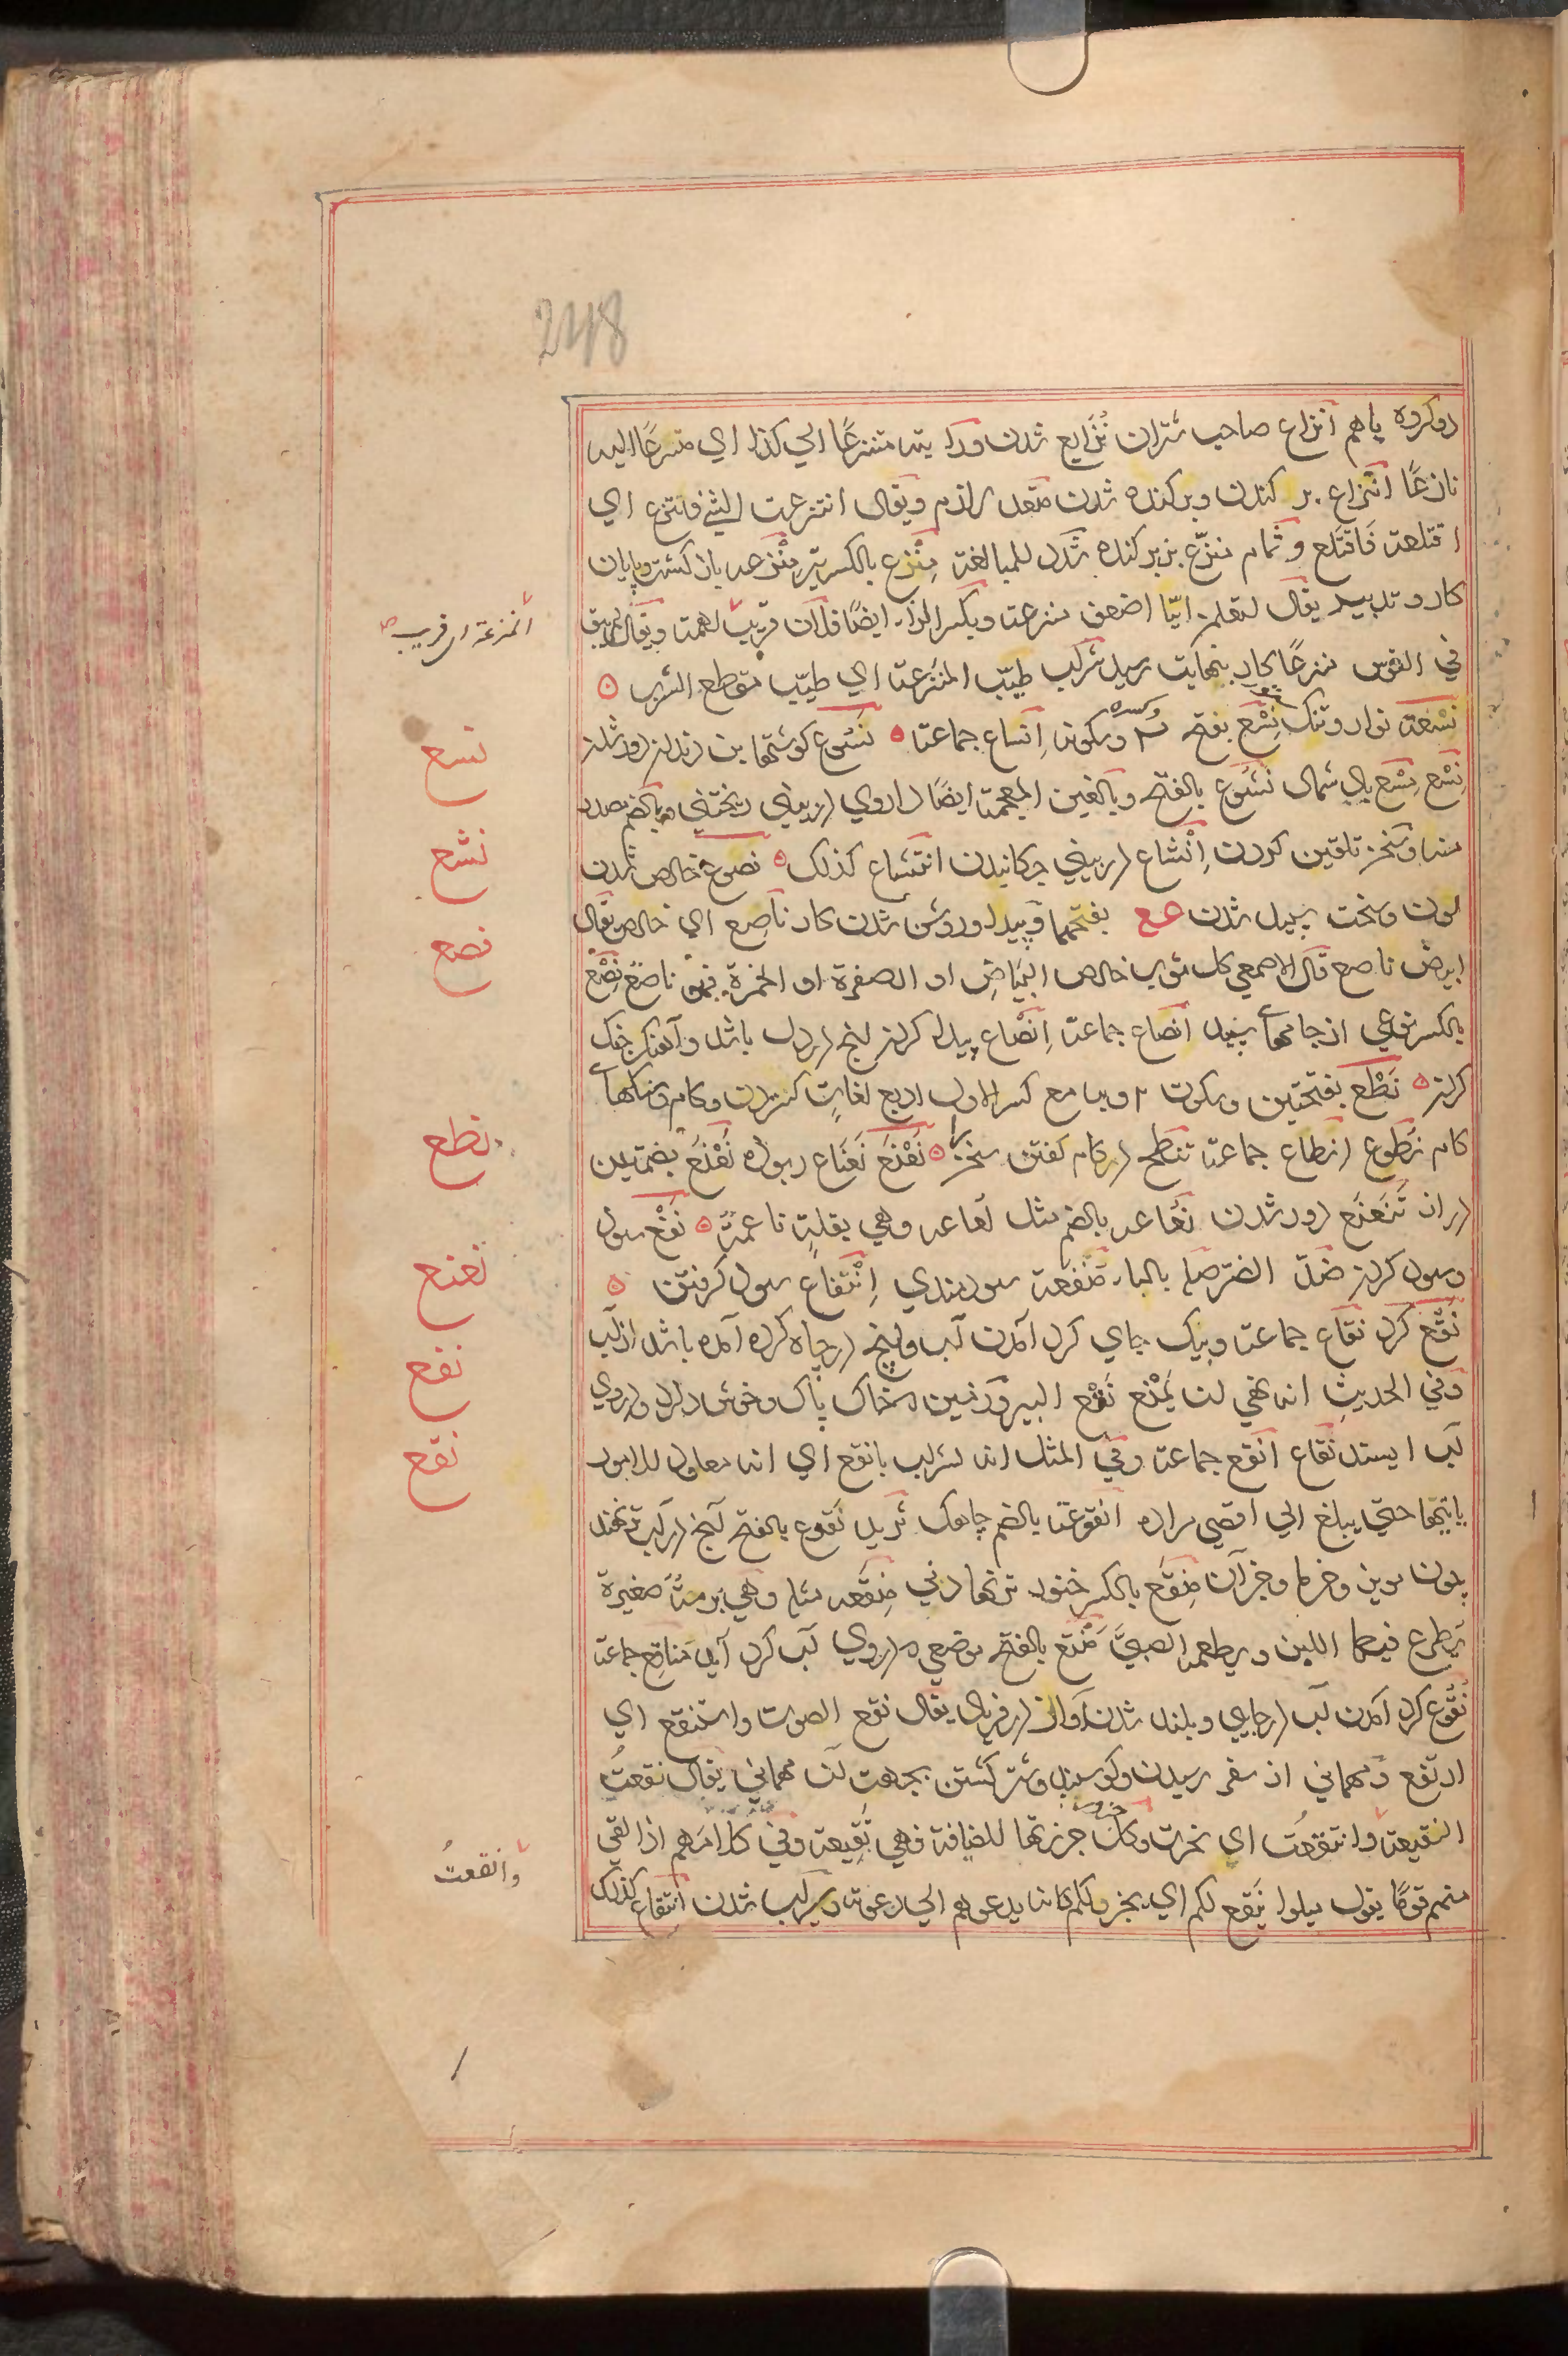 248
دو کروه باهم انزاع صاحب شتران نزایع شدن ورایته متنزعا الی کذا ای متسرعا الیه
نازعا انتزاع بر کندن وبر کنده شدن متعد لازم ویقال انتزعت الشئ فانتزع ای
اقتلعته فاقتلع وثمام منزع بزبر کنده شدد للمبالغة منزع بالکسر تیر منزعه باز کشت وپایان
کار وتدبیر یقال لتعلمن اینا اضعف منزعة وبکسر المزاء ایضا فلان قریب الهمة ویقال
انمزعة ای قریب
فی القوس منزعا بجاد بنهایت رسید شراب طیب المنزعة ای طیب مقطع الشرب ٥
نسعة نوار وتنک نسع بفتح س وسکونه انساع جماعة ٥ نسوع کوشتهای بن دندان دور شدن
نسع
نسع مسع باد شمال نشوع بالفتح وبالغین المعجمة ایضا داروی در بینی ریختنی وبالضم مصدر
منه وسخن تلقین کردن انشاع در بینی چکانیدن انتشاع کذلک ٥ نصوع خالص شدن
نشع
لون وسخت سپید شدن ع ع بفتحهما وپیدا وروشن شدن کار ناصع ای خالص یقال
نصع
ابیض ناصع قال الاصمعی کل ثوب خالص البیاض او الصفرة او الحمرة فهو ناصع نصع
بالکسر نوعی از جامهای سپید انصاع جماعة انصاع پیدا کردن انچه در دل باشد وآهنک جنک
کردن ٥ نطع بفتحتین وسکون ٢ وبها مع کسر الاول اربع لغات کستردن وکام وشکنهای
نطع
کام نطوع انطاع جماعة تنطع در کام کفتن سخن را ٥ نعنع نعناع ربوده نعنع بضمتین
دراز تنعنع دور شدن نعاعه بالضم مثل لعاعه وهی بقلة ناعمة ٥ نفع سود
نعنع
وسود کردن ضد الضر صله بالباء منفعة سودمندی انتفاع سود کرفتن ٥
نفع
نقع کرد نقاع جماعة وبیک جای کرد آمدن آب وانچه در چاه کرد آمده باشد از آب
وفی الحدیث انه نهی ان یمنع نقع البیر وزمین خاک پاک وخوش دارد در وی
نقع
آب ایستد نقاع انقع جماعة وفی المثل انه لشراب بانقع ای انه معاود للامور
یاتیها حتی یبلغ الی اقصی مراده انقوعة بالضم چاهک ثرید نقوع بالفتح آنچ در آب تر نهند
چون مویز وخرما وجز آن منقع بالکسر خنور تر نهادنی منقعه مثله وهی برمة صغیرة
یطرح فیها اللبن ویطعمه الصبی منقع بالفتح موضعی در وی آب کرد آید مناقع جماعة
نقوع کرد آمدن آب در جایی وبلند شدن آواز در فریاد یقال نقع الصوت واستنقع ای
ارتفع ومهمانی از سفر رسیدن وکوسپند وشتر کشتن بجهت آن مهمانی یقال نقعت
النقیعة وانتقعت ای نحرت وکل جزور جزرتها للضیافة فهی نقیعة وفی کلامهم اذا لقی
وانقعت
منهم قوما یقول میلوا ینقع لکم ای یجزر لکم کانه یدعوهم الی دعوته وسیراب شدن انتقاع کذلک